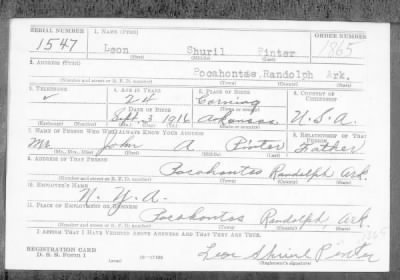 SERIAL NUMBER 1. NAME (Print) ORDER NUMBER
1547 Leon Shuril Pinter 1865
(First) (Middle) (Last)
2. ADDRESS (Print)
Pocahontas, Randolph Ark.
(Number and street or R. F. D. number) (Town) (County) (State)
3. TELEPHONE 4. AGE IN YEARS 5. PLACE OF BIRTH 6. COUNTRY OF CITIZENSHIP
24 Corning
DATE OF BIRTH (Town or county)
Sept. 3 1916 Arkansas U.S.A.
(Exchange) (Number) (Mo.) (Day) (Yr.) (State or country)
7. NAME OF PERSON WHO WILL ALWAYS KNOW YOUR ADDRESS 8. RELATIONSHIP OF THAT PERSON
Mr. John A Pinter Father
(Mr., Mrs., Miss) (First) (Middle) (Last)
9. ADDRESS OF THAT PERSON
Pocahontas Randolph Ark.
(Number and street or R. F. D. number) (Town) (County) (State)
10. EMPLOYER'S NAME
N. Y. A.
11. PLACE OF EMPLOYMENT OR BUSINESS
Pocahontas Randolph, Ark.
(Number and street or R. F. D. number) (Town) (County) (State)
I AFFIRM THAT I HAVE VERIFIED ABOVE ANSWERS AND THAT THEY ARE TRUE.
REGISTRATION CARD
D. S. S. Form 1 Leon Shuril Pinter
(Registrant's signature)